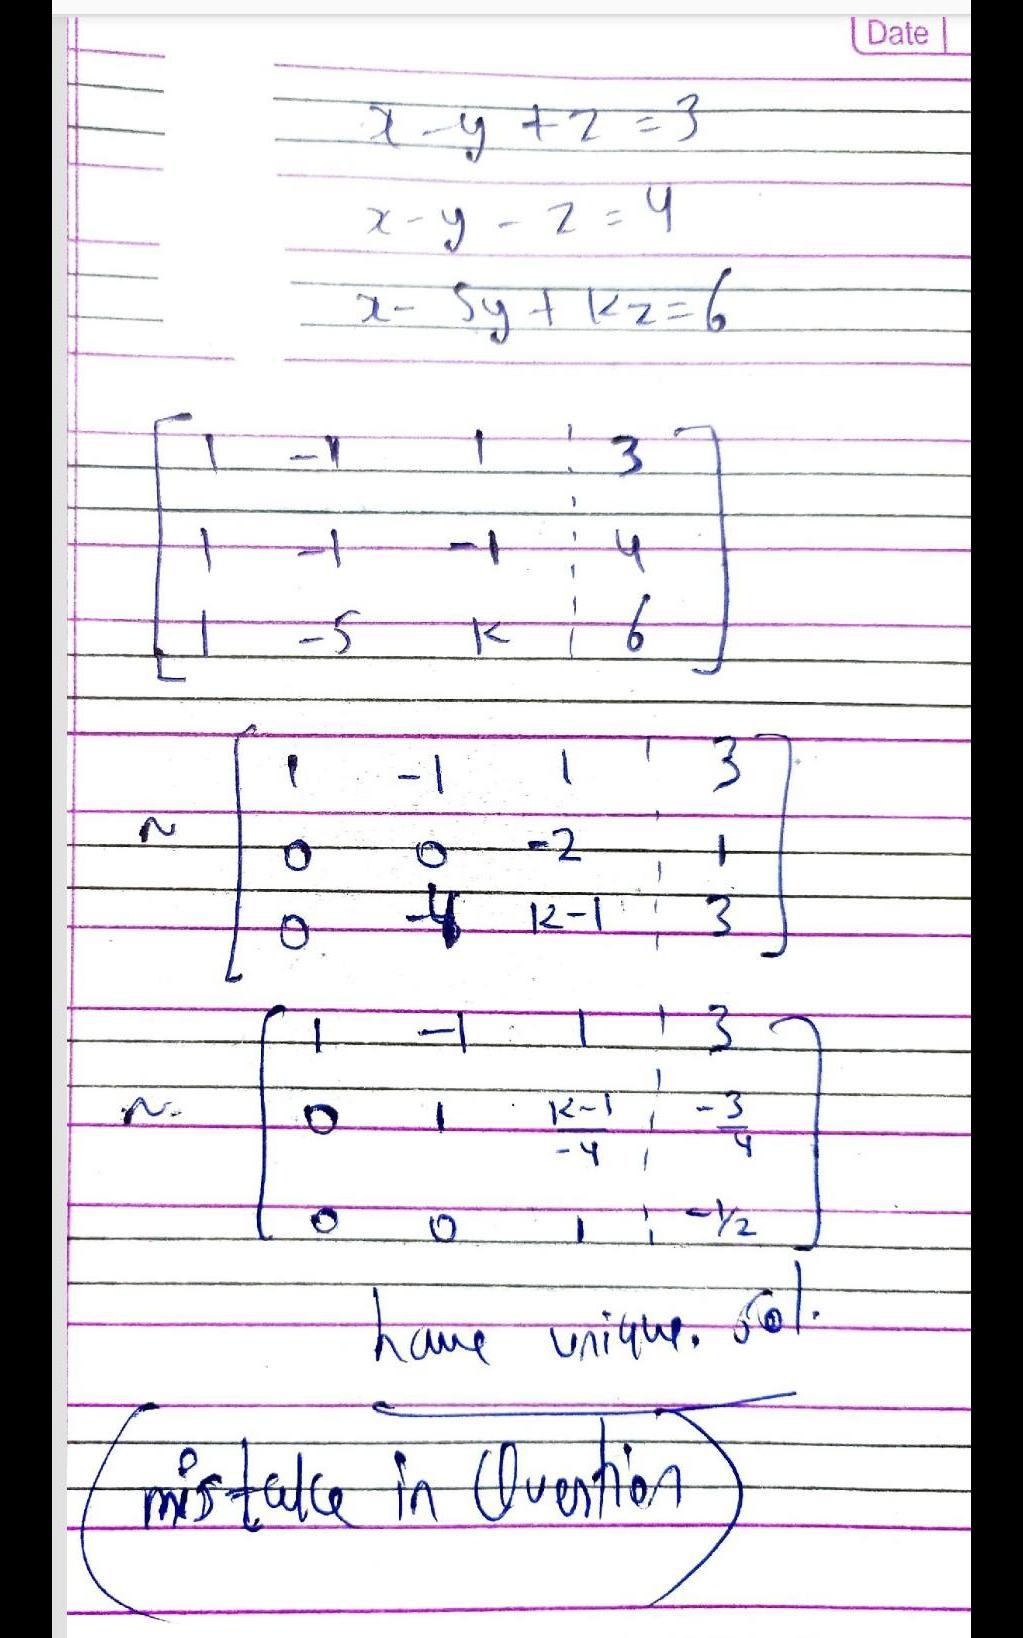 Date
x - y + z = 3
x - y - z = 4
x - 5y + kz = 6
1 -1 1 3
1 -1 -1 4
1 -5 k 6
~ 1 -1 1 3
0 0 -2 1
0 -4 k-1 3
~ 1 -1 1 3
0 1 k-1/-4 -3/4
0 0 1 -1/2
have unique. sol.
mistake in Question